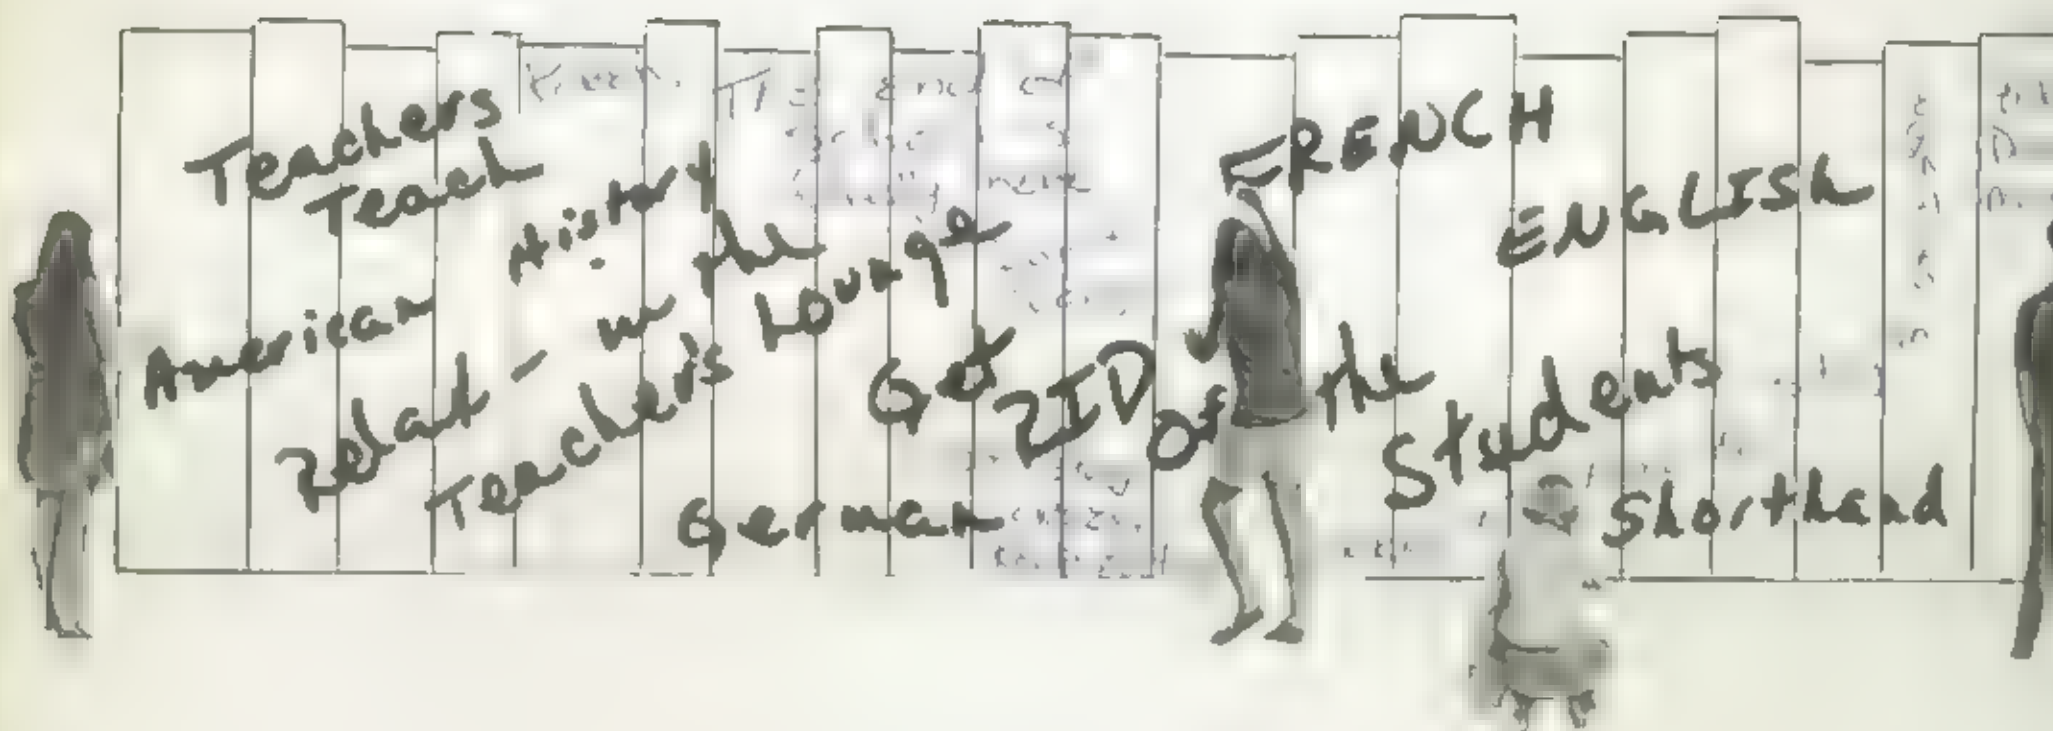 Teachers
Teach
American History
Relax - in the
Teacher's Lounge
Get RID of the
Students
German
FRENCH
ENGLISH
Shorthand